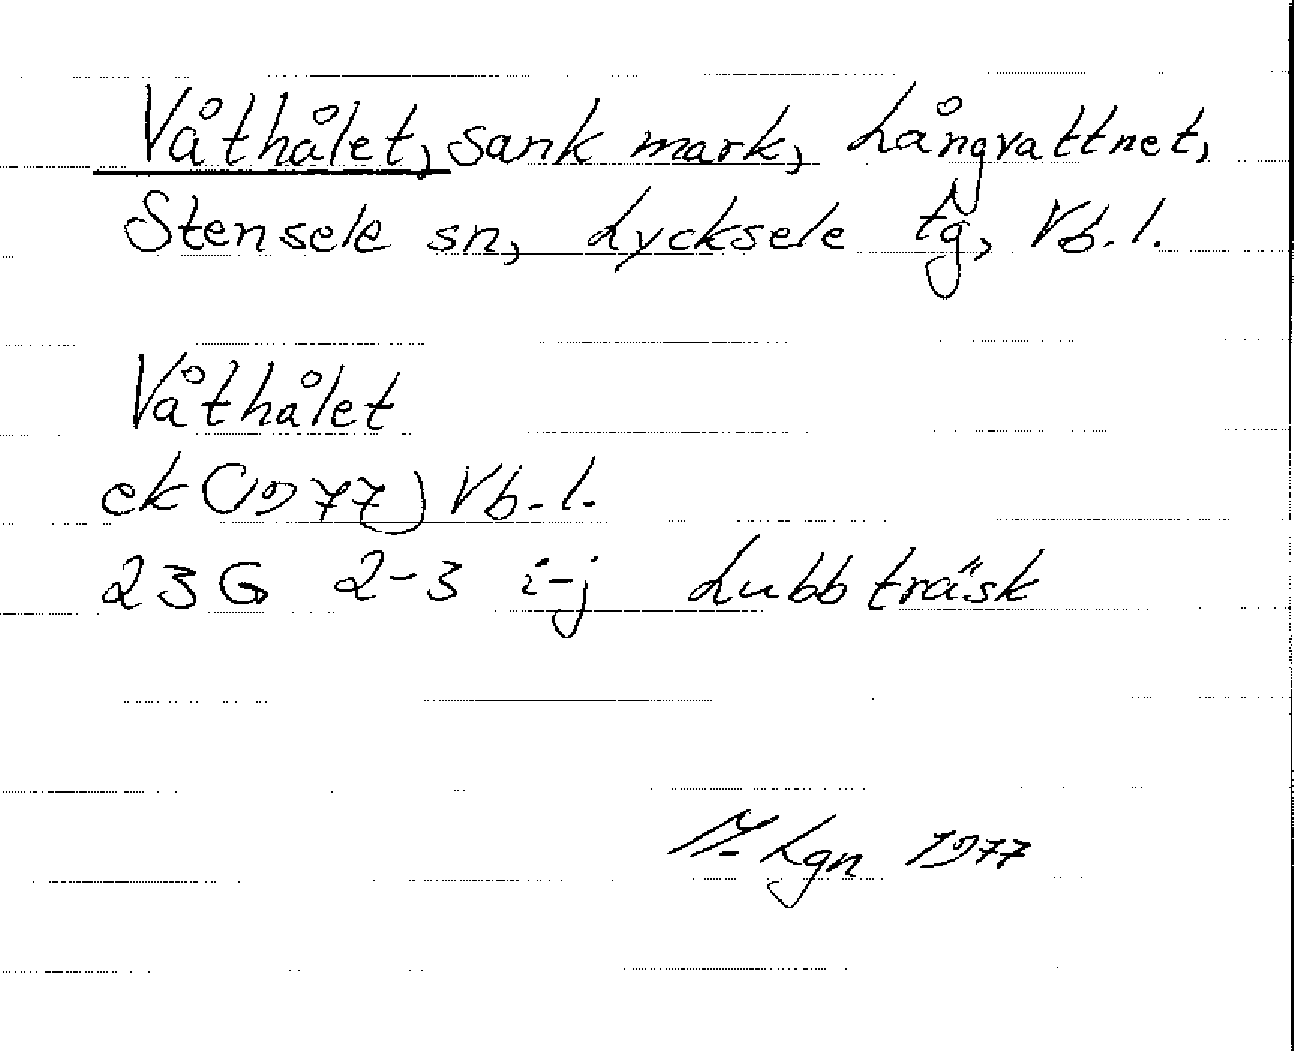 Våthålet, sank mark, Långvattnet,
Stensele sn, Lycksele tg, Vb.l.
Våthålet
ek (1977) Vb.l.
23G 2-3 i-j Lubbträsk
M. Lgn 1977